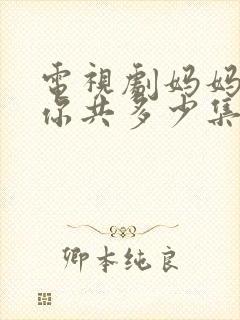 電視劇妈妈
你共多少集
卿本纯良